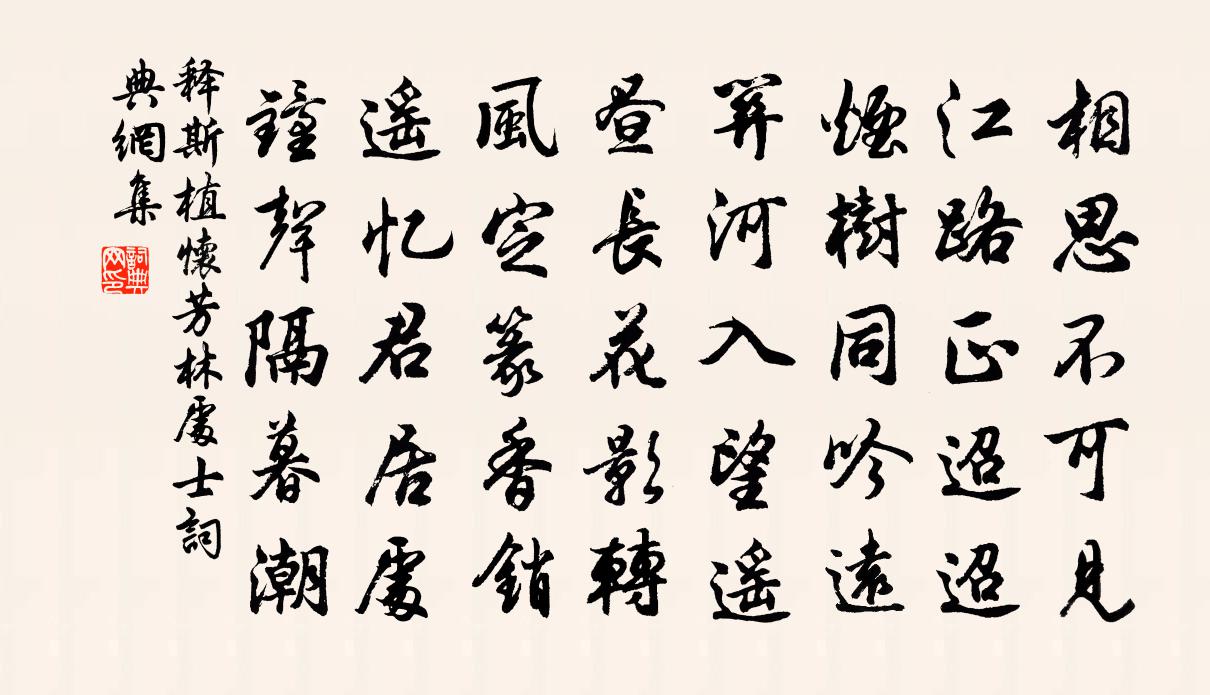 相思不可見
江路正迢迢
煙樹同吟遠
笄河入望遥
昼長花影轉
風定篆香銷
遥忆君居處
鐘聲隔暮潮
释斯植懷芳林處士詞
典網集
詞典
网印